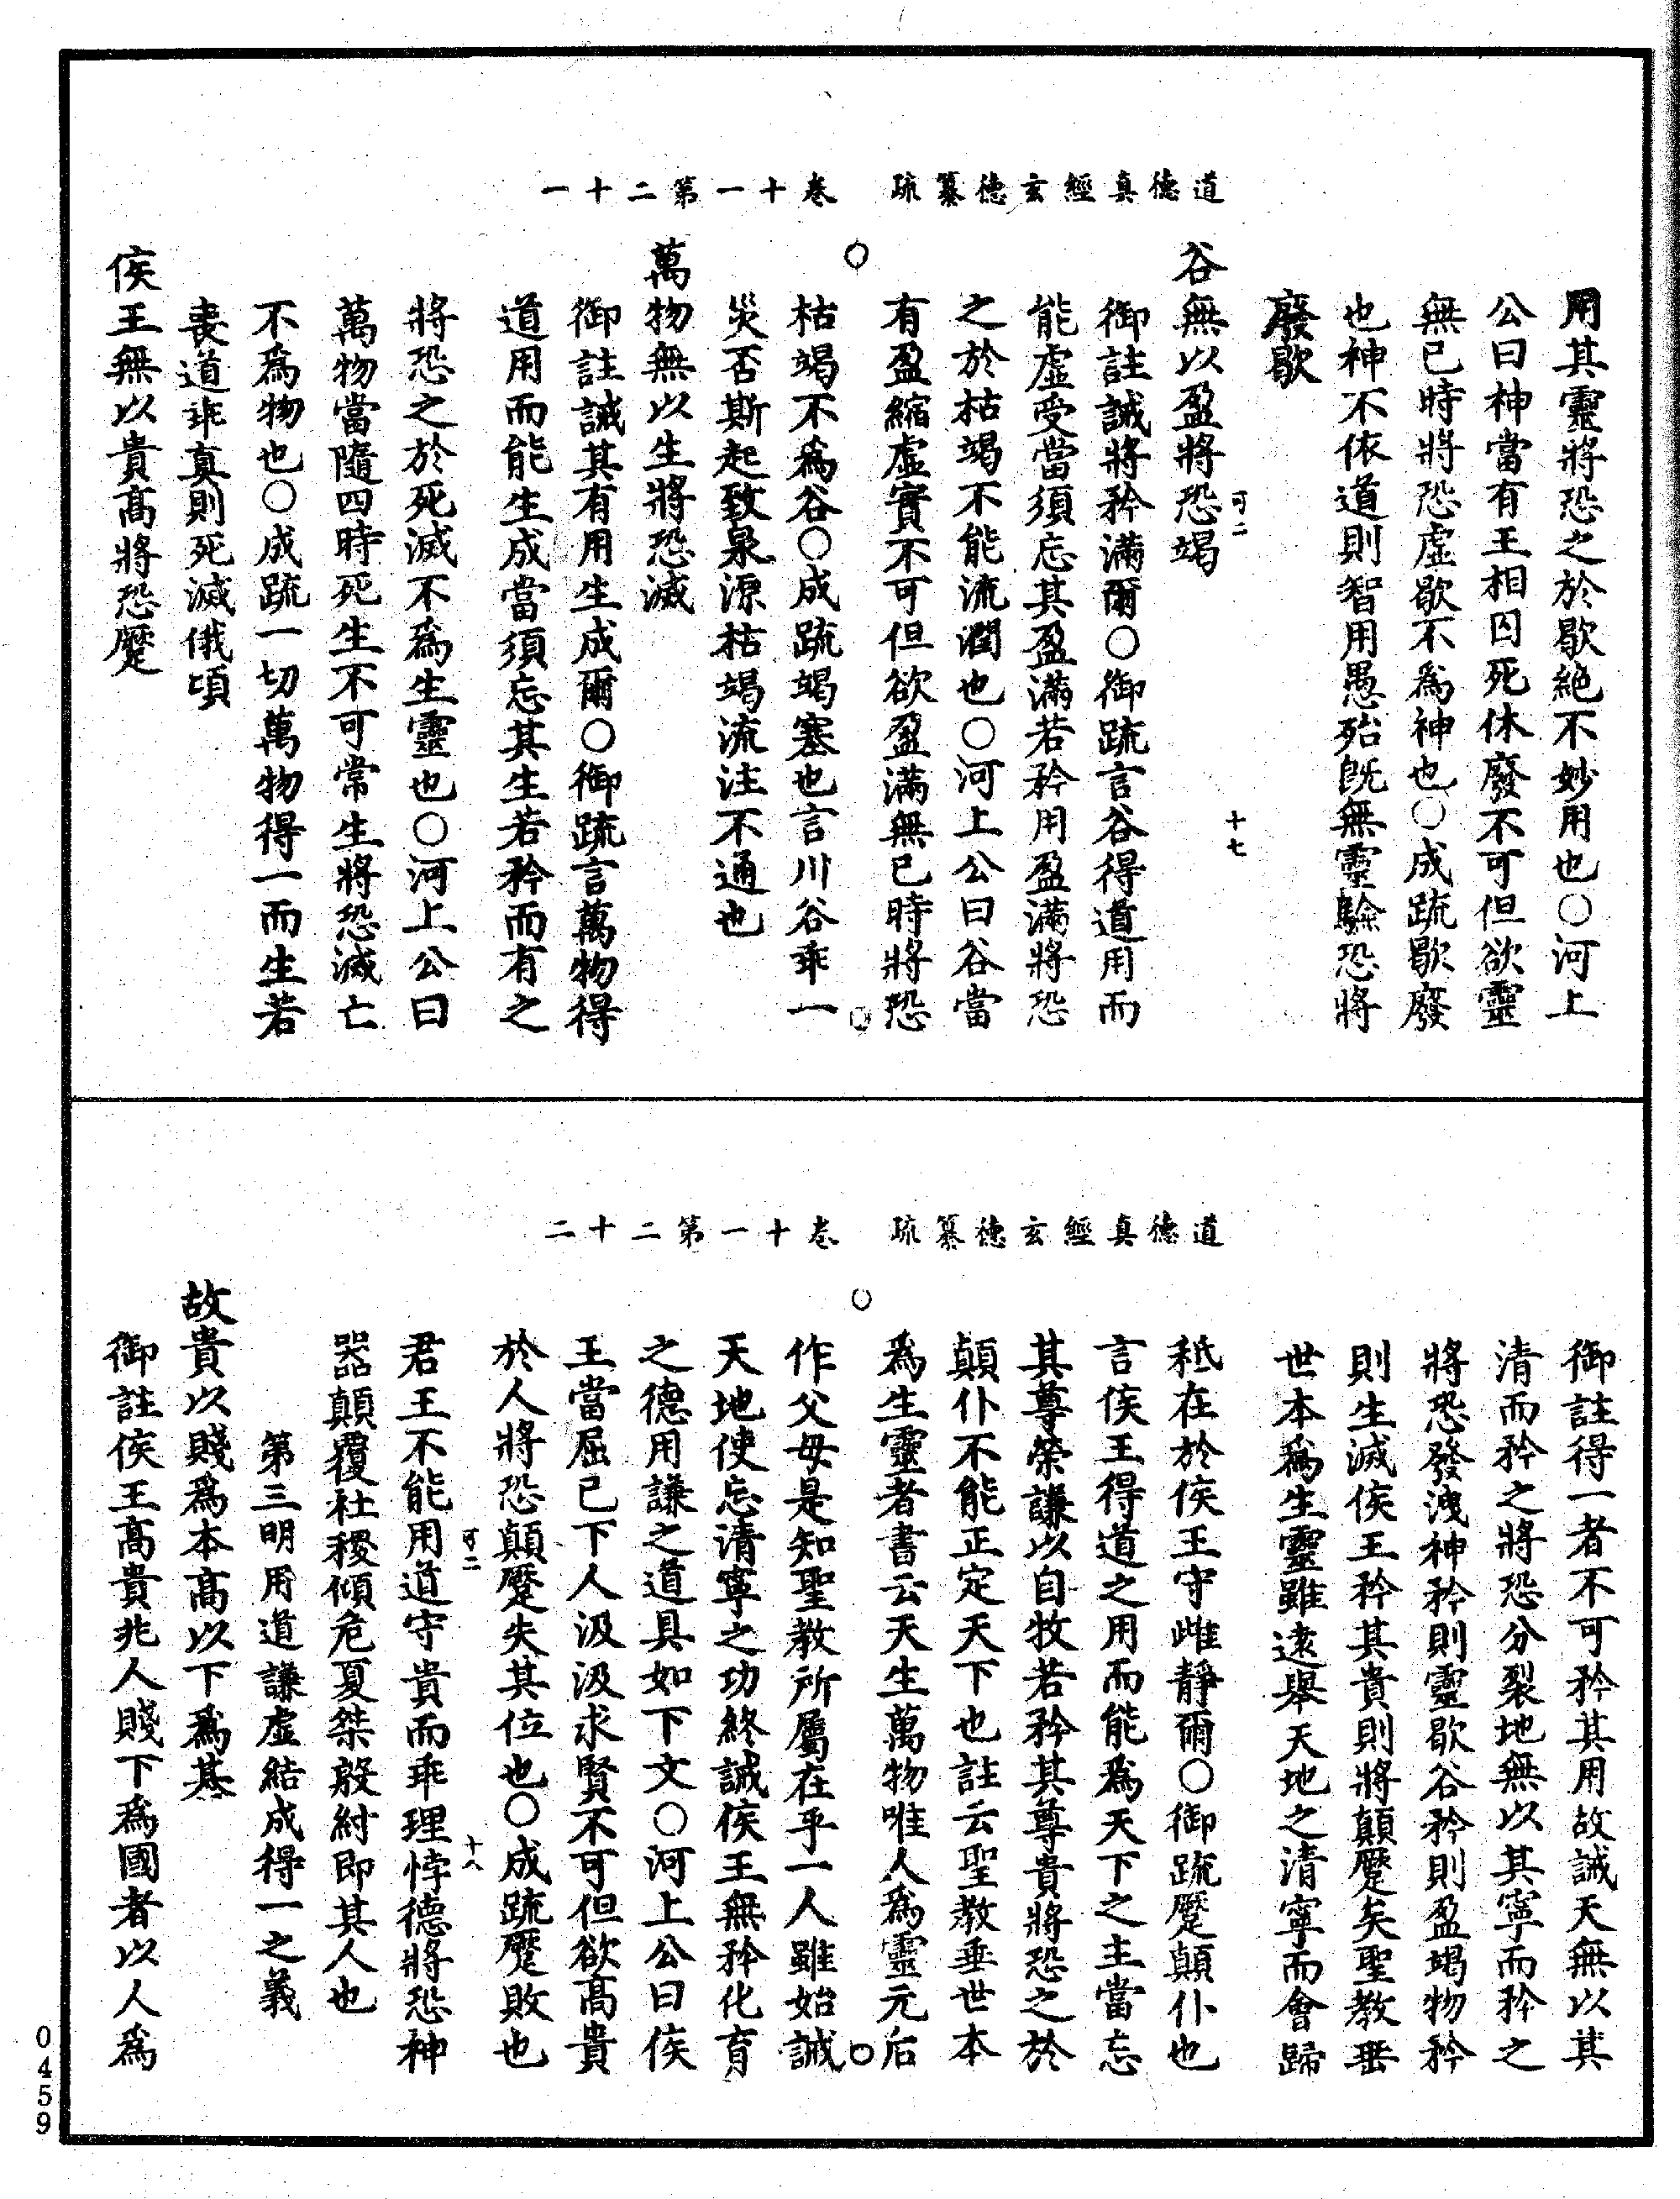 道德真經玄德纂疏　卷十一第二十一
用其靈將恐之於歇絶不妙用也○河上
公曰神當有王相囚死休廢不可但欲靈
無已時將恐虛歇不爲神也○成疏歇廢
也神不依道則智用愚殆旣無靈驗恐將
廢歇
谷無以盈將恐竭
可二
十七
御註誡將矜滿爾○御疏言谷得道用而
能虛受當須忘其盈滿若矜用盈滿將恐
之於枯竭不能流潤也○河上公曰谷當
有盈縮虛實不可但欲盈滿無已時將恐
枯竭不爲谷○成疏竭塞也言川谷乖一
災否斯起致泉源枯竭流注不通也
萬物無以生將恐滅
御註誡其有用生成爾○御疏言萬物得
道用而能生成當須忘其生若矜而有之
將恐之於死滅不爲生靈也○河上公曰
萬物當隨四時死生不可常生將恐滅亡
不爲物也○成疏一切萬物得一而生若
喪道乖真則死滅俄頃
侯王無以貴高將恐蹷
道德真經玄德纂疏　卷十一第二十二
御註得一者不可矜其用故誡天無以其
清而矜之將恐分裂地無以其寧而矜之
將恐發洩神矜則靈歇谷矜則盈竭物矜
則生滅侯王矜其貴則將顛蹷矣聖教垂
世本爲生靈雖遠舉天地之清寧而會歸
秪在於侯王守雌靜爾○御疏蹷顛仆也
言侯王得道之用而能爲天下之主當忘
其尊榮謙以自牧若矜其尊貴將恐之於
顛仆不能正定天下也註云聖教垂世本
爲生靈者書云天生萬物唯人爲靈元后
作父母是知聖教所屬在乎一人雖始誡
天地使忘清寧之功終誡侯王無矜化育
之德用謙之道具如下文○河上公曰侯
王當屈已下人汲汲求賢不可但欲高貴
於人將恐顛蹷失其位也○成疏蹷敗也
可二
十八
君王不能用道守貴而乖理悖德將恐神
器顛覆社稷傾危夏桀殷紂即其人也
第三明用道謙虛結成得一之義
故貴以賤爲本高以下爲基
御註侯王高貴兆人賤下爲國者以人爲
0459